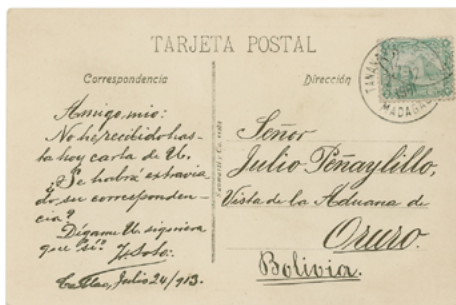 TARJETA POSTAL
Correspondencia
Dirección
Amigo mio:
No he recibido has-
ta hoy carta de U.
¿Se habrá extravia
do su corresponden-
cia?
Dígame U. siquiera
que "si".
Callao, Julio 24/913.
Señor
Julio Peñaylillo,
Vista de la Aduana de
Oruro.
Bolivia.
MADAGA